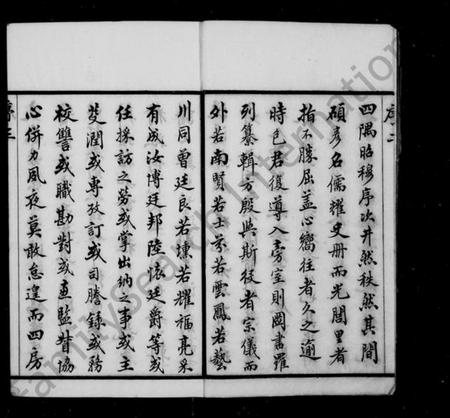 四隅昭穆序次井然秩然其間
碩彥名儒耀史冊而光閭里者
指不勝屈蓋心嚮往者久之逾
時邑君復導入旁室則圖書羅
列纂輯方殷與斯役者宗儀而
外若南賢若士芬若雲鳳若藝
川同曾廷良若燻若耀福亮采
有成汝博廷邦陸懷廷爵等或
任採訪之勞或掌出納之事或主
芟潤或專攷訂或司謄錄或務
校讐或職勘對或直監督協
心併力夙夜莫敢怠遑而四房
序二
序三
FamilySearch International